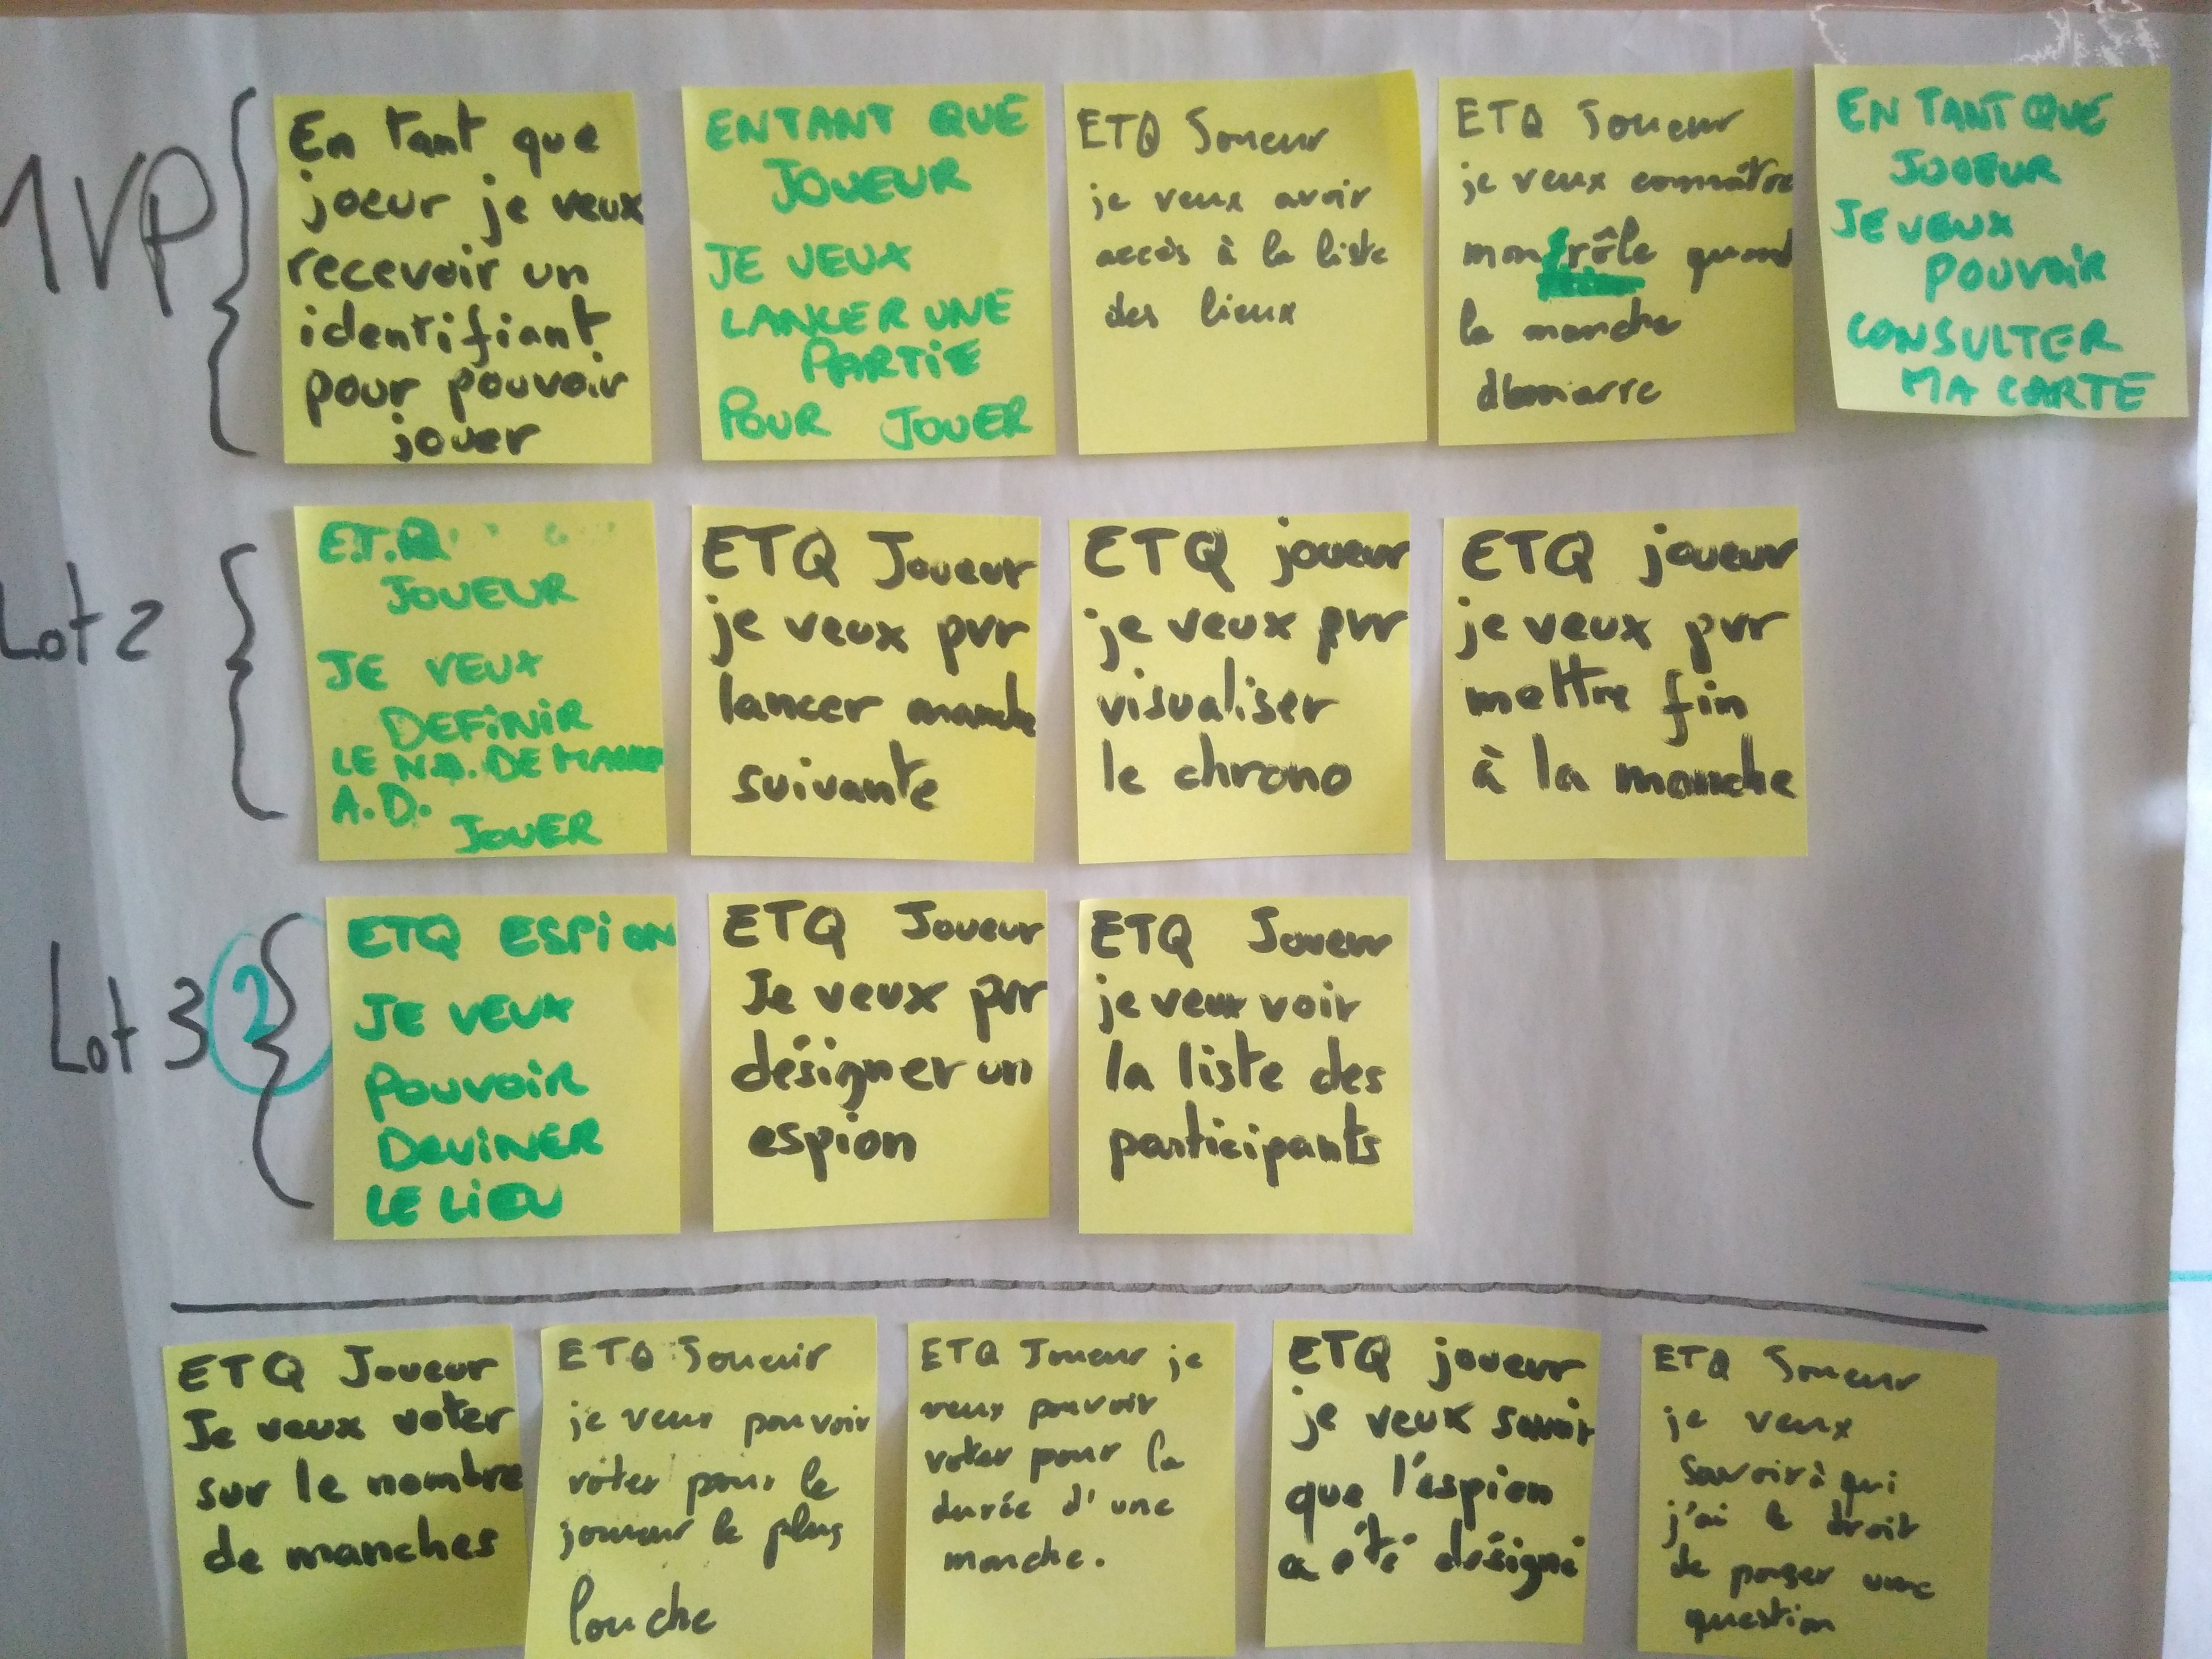 MVP
En tant que
joeur je veux
recevoir un
identifiant
pour pouvoir
jouer
EN TANT QUE
JOUEUR
JE VEUX
LANCER UNE
PARTIE
POUR JOUER
ETQ Joueur
je veux avoir
accès à la liste
des lieux
ETQ Joueur
je veux connaître
mon rôle quand
la manche
démarre
EN TANT QUE
JOUEUR
JE VEUX
POUVOIR
CONSULTER
MA CARTE
Lot 2
E.T.Q
JOUEUR
JE VEUX
DEFINIR
LE NB. DE
A.D.
JOUER
ETQ Joueur
je veux pvr
lancer manche
suivante
ETQ joueur
je veux pvr
visualiser
le chrono
ETQ joueur
je veux pvr
mettre fin
à la manche
Lot 3 2
ETQ ESPION
JE VEUX
POUVOIR
DEVINER
LE LIEU
ETQ Joueur
Je veux pvr
désigner un
espion
ETQ Joueur
je veux voir
la liste des
participants
ETQ Joueur
Je veux voter
sur le nombre
de manches
ETQ Joueur
je veux pouvoir
voter pour le
joueur le plus
louche
ETQ Joueur je
veux pouvoir
voter pour la
durée d'une
manche.
ETQ joueur
je veux savoir
que l'espion
a été désigné
ETQ Joueur
je veux
savoir à qui
j'ai le droit
de poser une
question